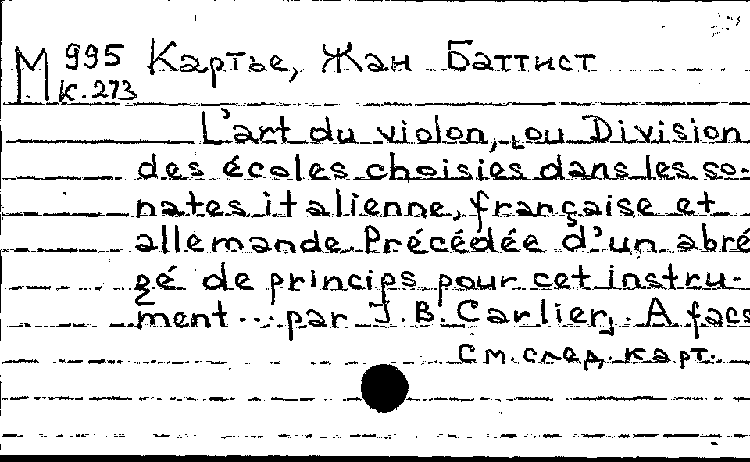 М 995 Картье, Жан Баттист
К.273
L'art du violon, ou Division
des écoles choisies dans les so-
nates italienne, française et
allemande. Précédée d'un abré
gé de princips pour cet instru-
ment... par J.B. Carlier, A facs
См. след. карт.